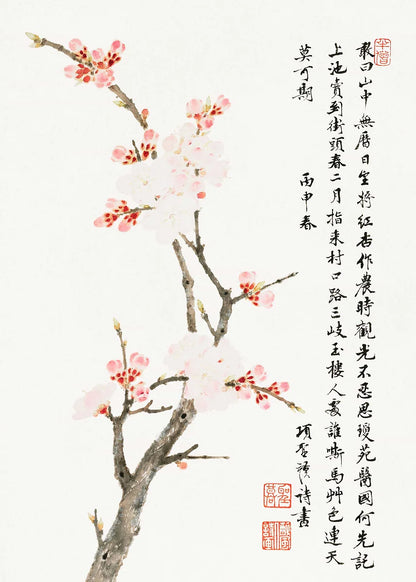 敢曰山中無曆日坐將紅杏作農時觀光不忍思瓊苑醫國何先記
上池賣到街頭春二月指來村口路三岐玉樓人誰嘶馬艸色連天
莫可期 丙申春
項聖謨詩書